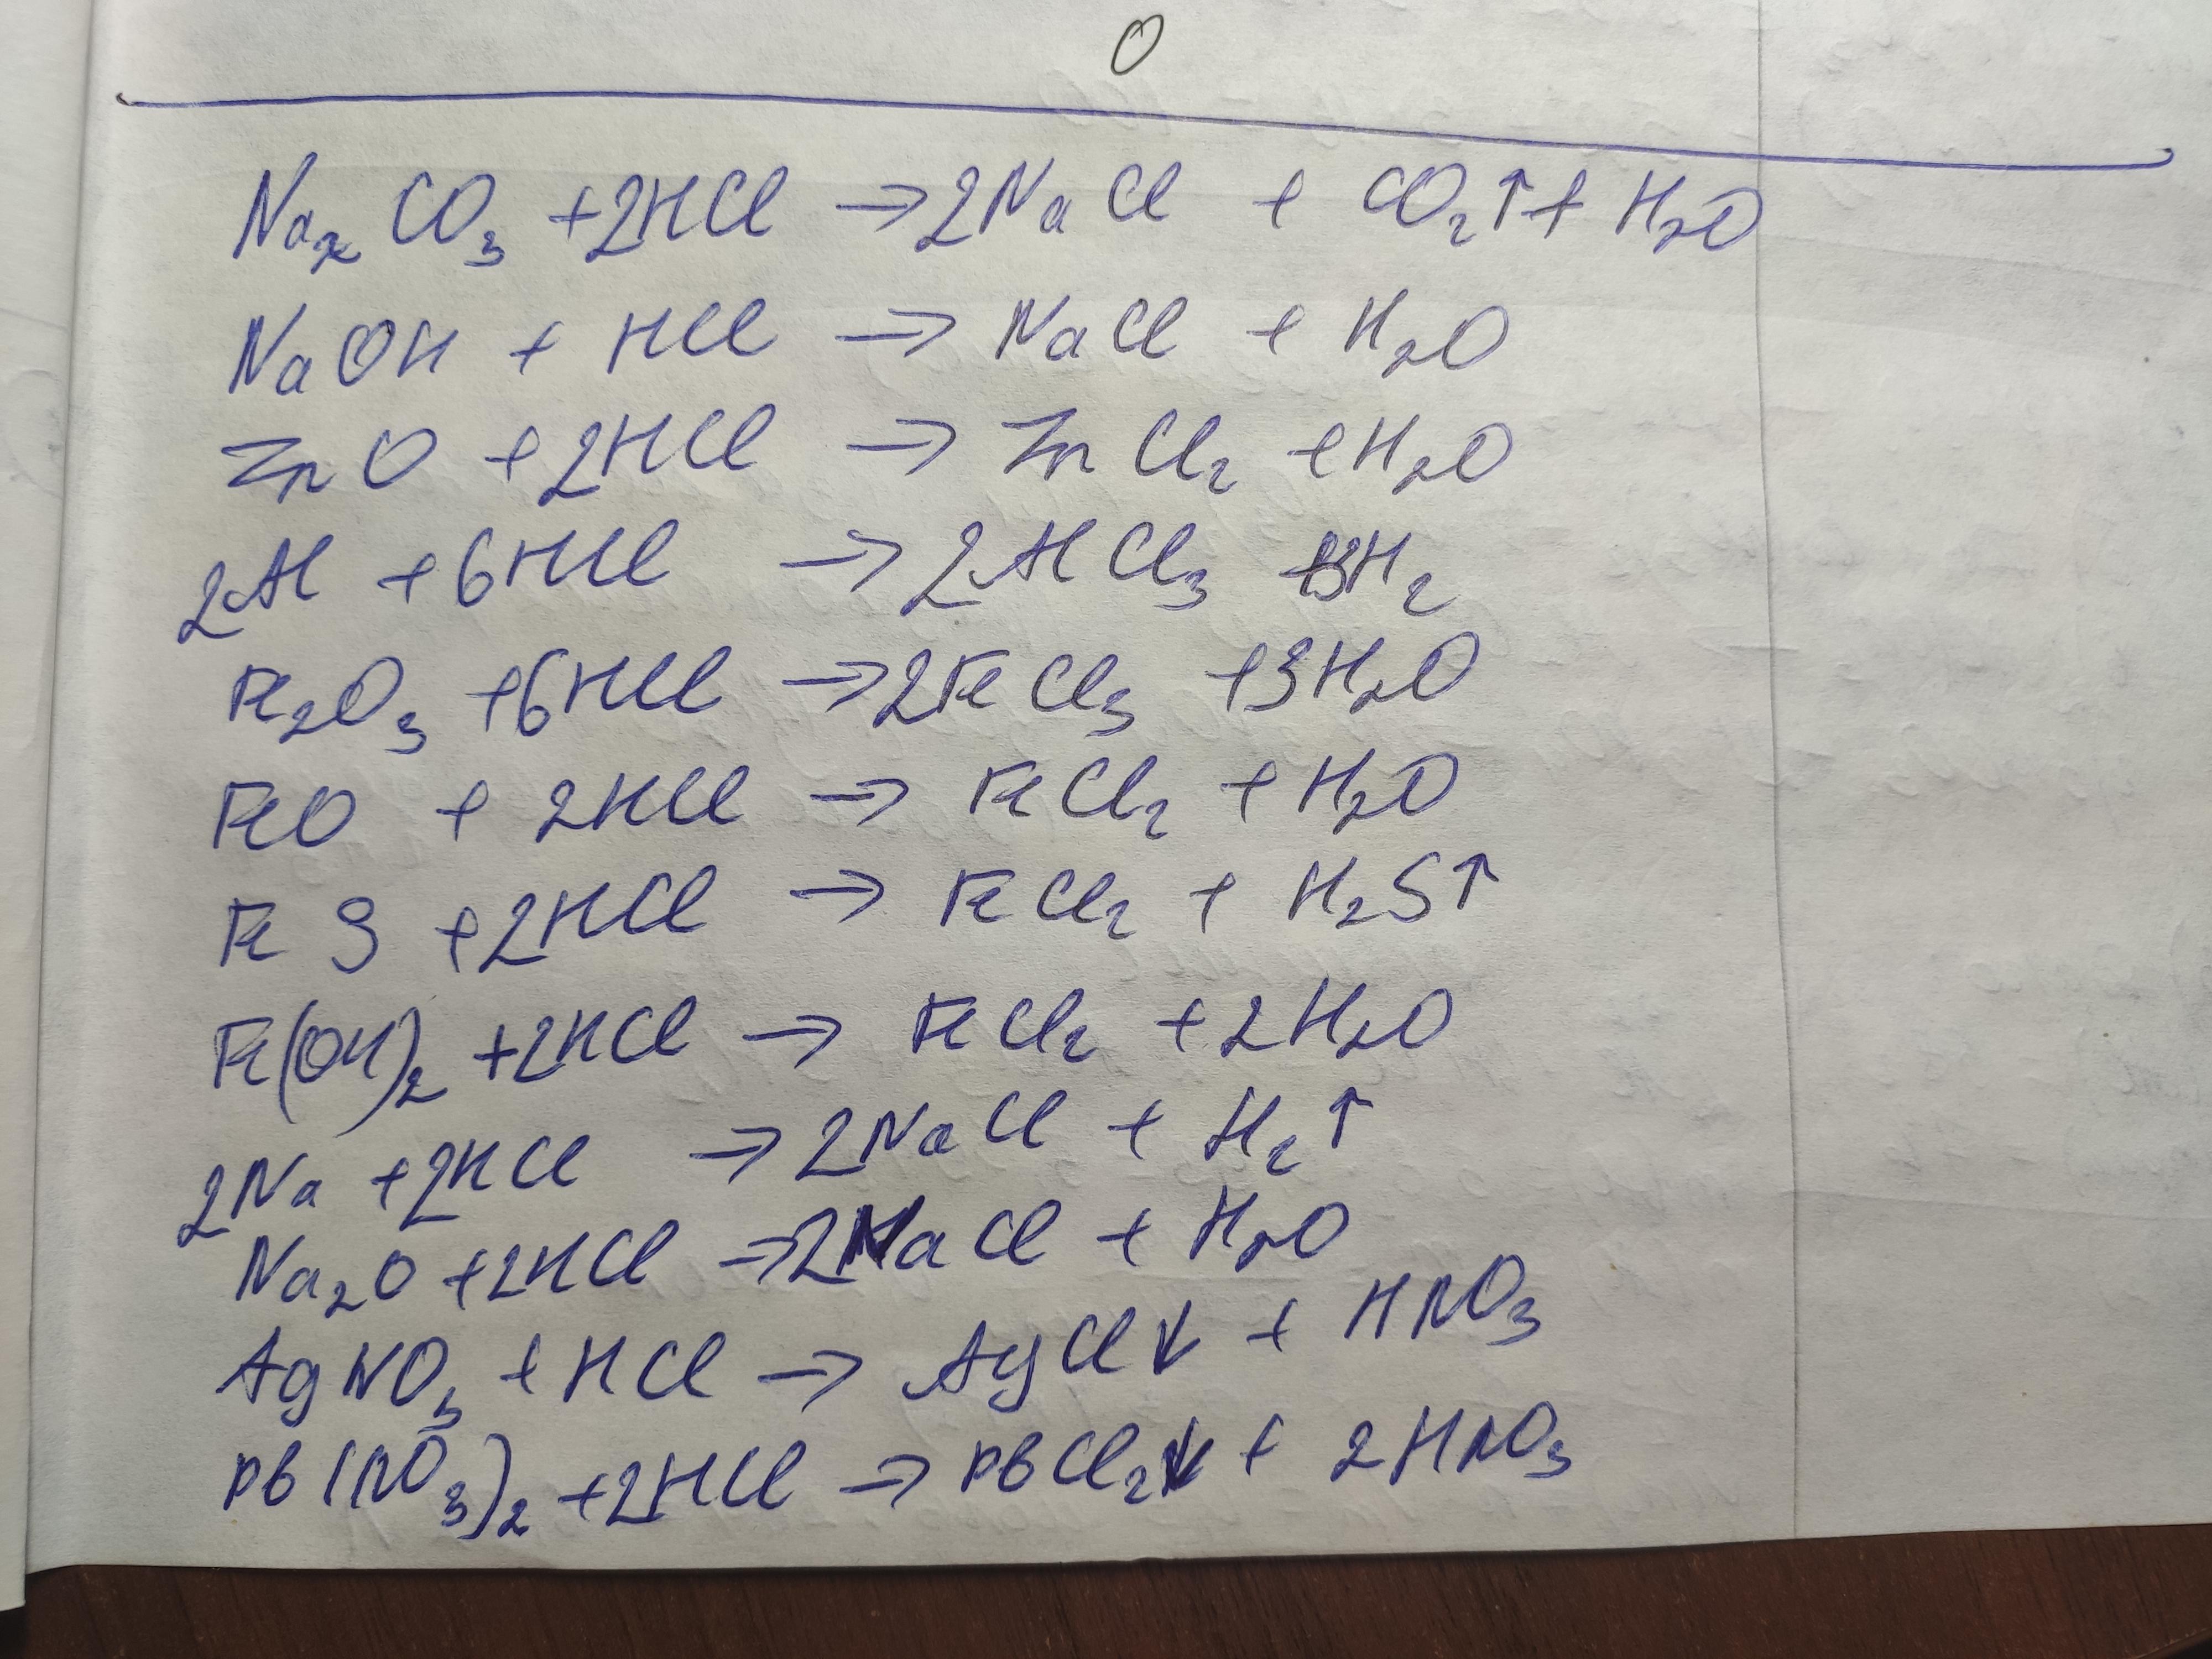 0
Na₂CO₃ +2HCl → 2NaCl + CO₂↑ + H₂O
NaOH + HCl → NaCl + H₂O
ZnO +2HCl → ZnCl₂ + H₂O
2Al +6HCl → 2AlCl₃ +3H₂
Fe₂O₃ +6HCl → 2FeCl₃ +3H₂O
FeO + 2HCl → FeCl₂ + H₂O
FeS +2HCl → FeCl₂ + H₂S↑
Fe(OH)₂ +2HCl → FeCl₂ +2H₂O
2Na +2HCl → 2NaCl + H₂↑
Na₂O +2HCl → 2NaCl + H₂O
AgNO₃ + HCl → AgCl↓ + HNO₃
Pb(NO₃)₂ +2HCl → PbCl₂↓ + 2HNO₃